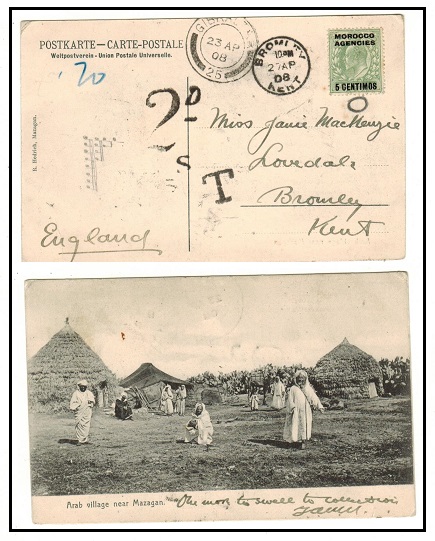 POSTKARTE — CARTE-POSTALE
Weltpostverein - Union Postale Universelle.
GIBRALTAR
23 AP
08
25
BROMLEY
27 AP
08
KENT
MOROCCO
AGENCIES
5 CENTIMOS
20
2D
T
O
Miss Janie MacKenzie
Lovedale
Bromley
Kent
England
Mazagan.
Arab village near Mazagan.
One more to swell to collection